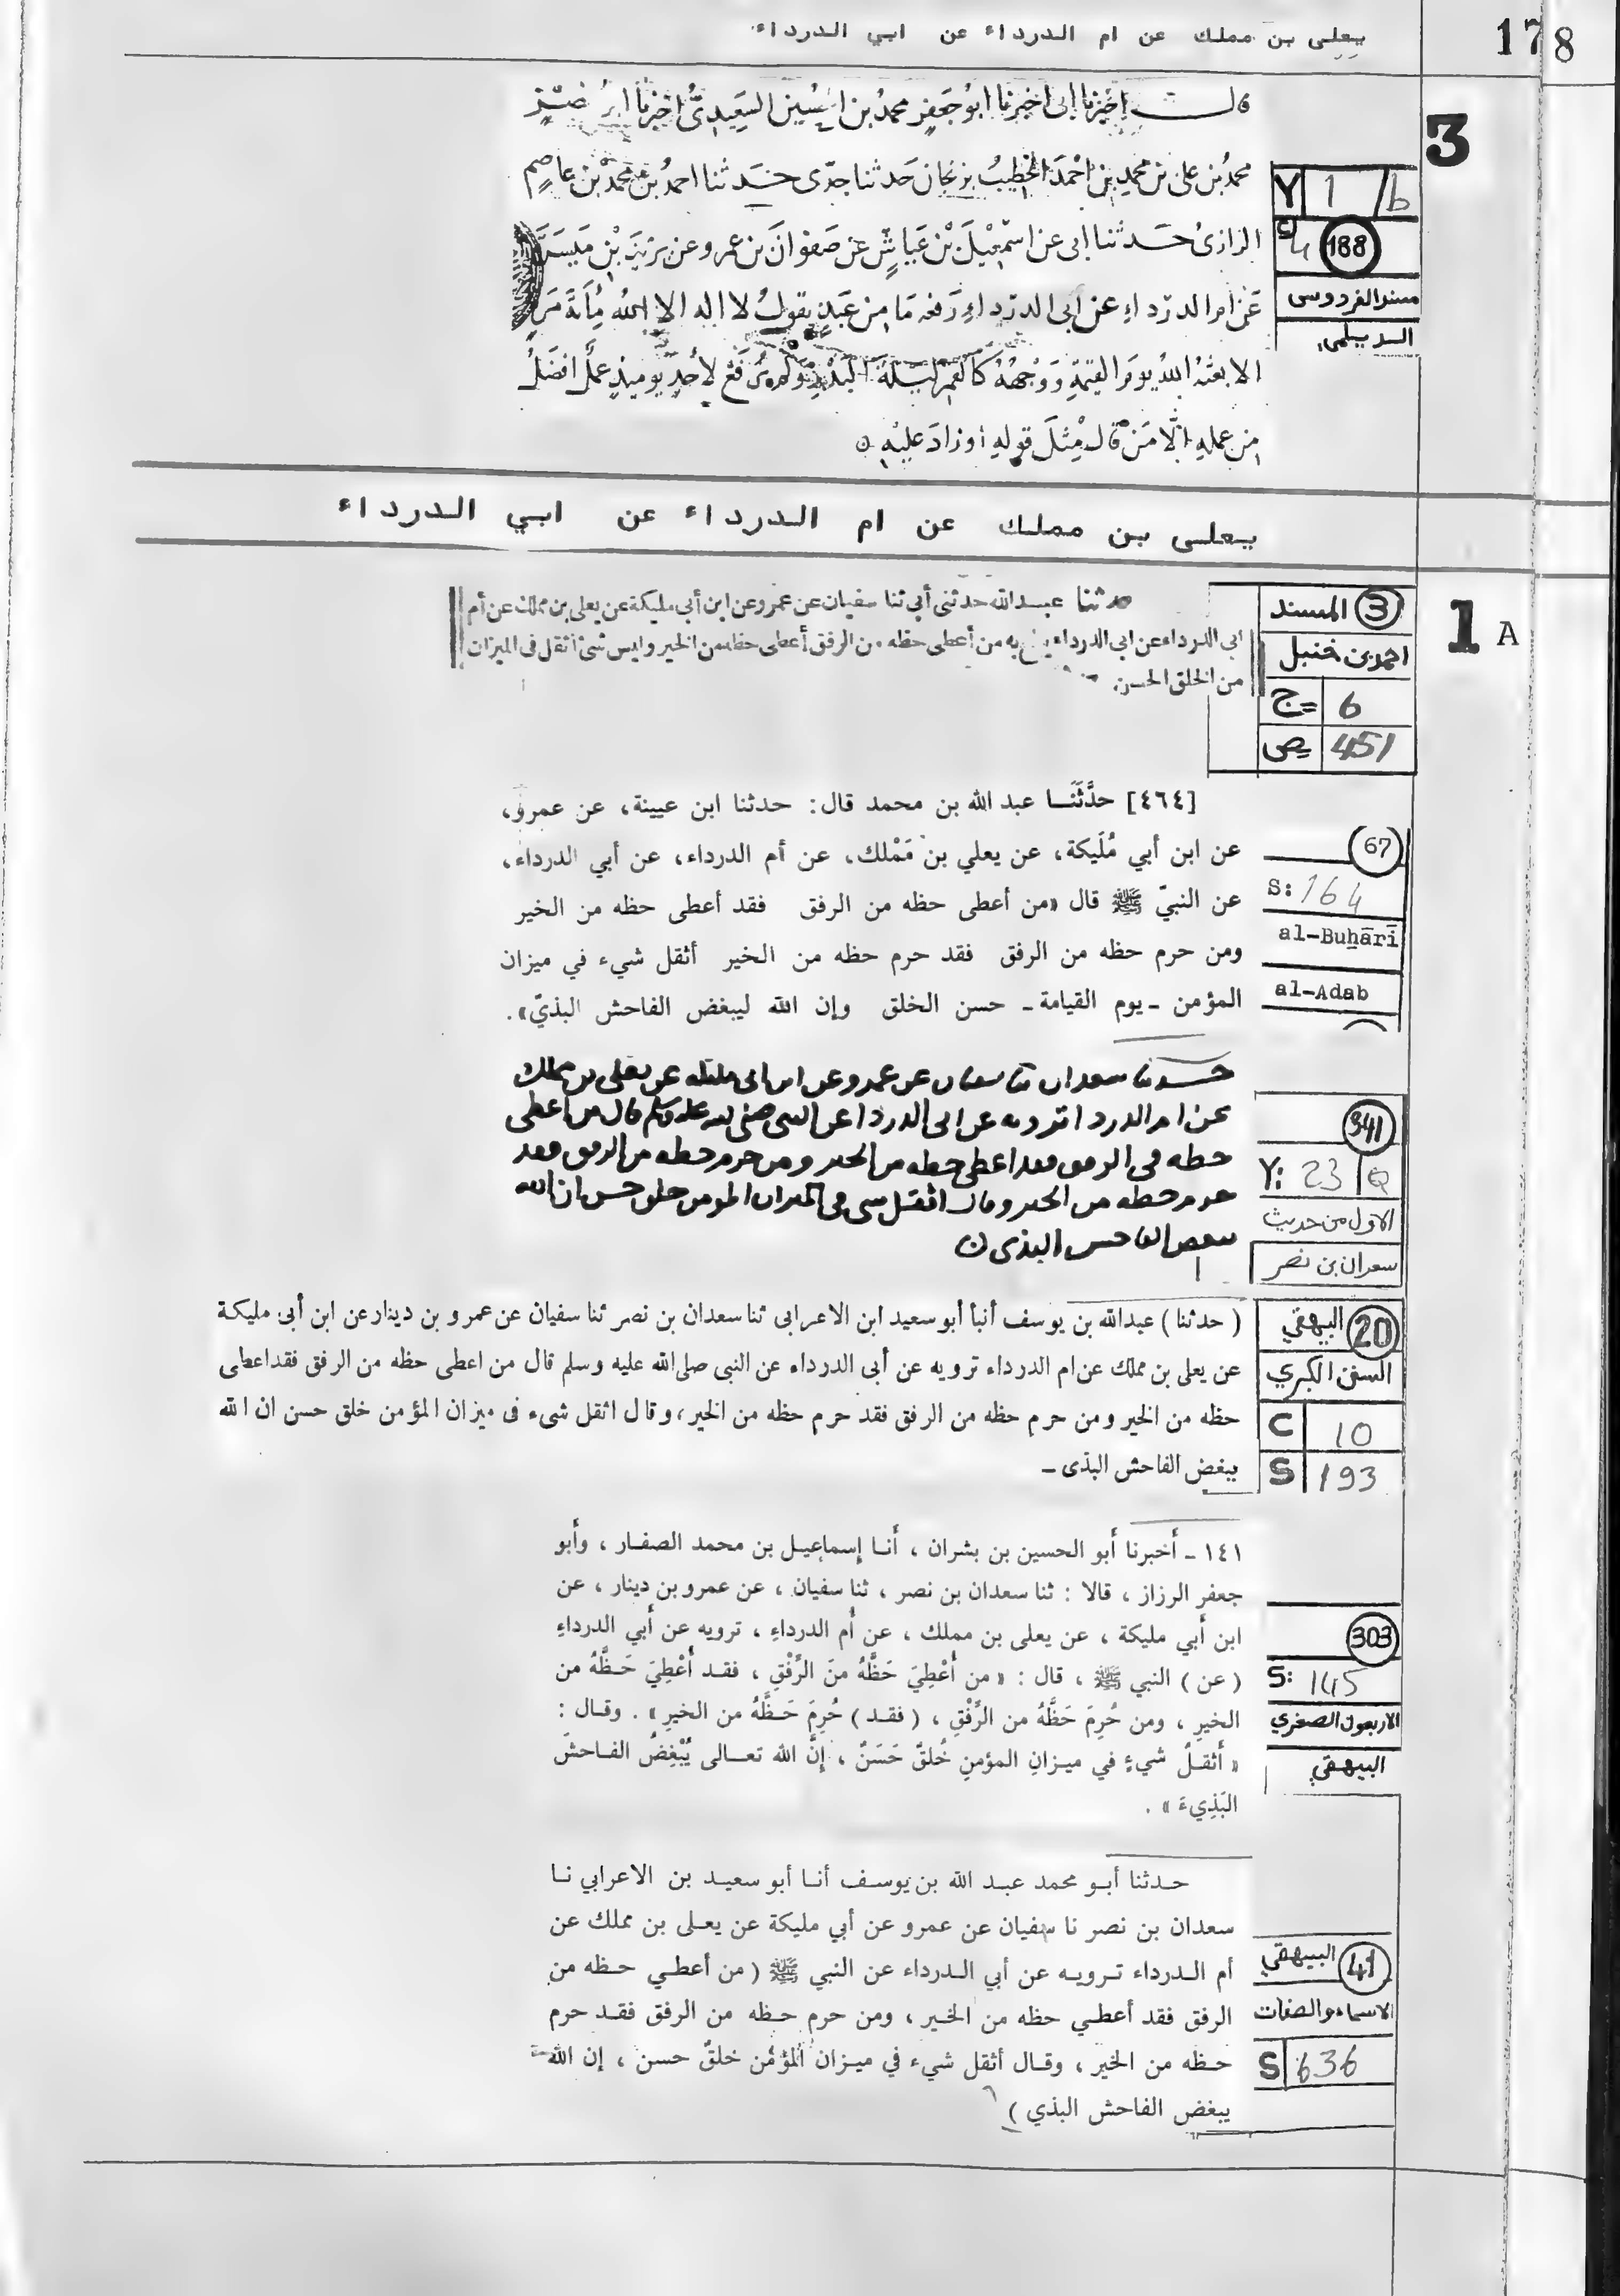 يعلى بن مملك عن ام الدرداء عن ابي الدرداء
178
3
قالـــت اخبرنا ابى اخبرنا ابو جعفر محمد بن الحسين السعيدى اخبرنا
محمد بن على بن محمد بن احمد الخطيب بزنجان حدثنا جدى حدثنا احمد بن محمد بن عاصم
الرازى حدثنا ابى عن اسمعيل بن عياش عن صفوان بن عمرو عن يزيد بن ميسرة
عن ام الدرداء عن ابى الدرداء رفعه ما من عبد يقول لا اله الا الله مأة مرة
الا بعثه الله يوم القيمة ووجهه كالقمر ليلة البدر ولم يرفع لأحد يومئذ عمل افضل
من عمله الا من قال مثل قوله او زاد عليه
Y 1/b
188
مسند الفردوسى
الديلمي
يعلى بن مملك عن ام الدرداء عن ابي الدرداء
1 A
حدثنا عبد الله حدثنى أبي ثنا سفيان عن عمرو عن ابن أبي مليكة عن يعلى بن مملك عن أم
ابي الدرداء عن ابي الدرداء يبلغ به من أعطى حظه من الرفق أعطى حظه من الخير وليس شئ أثقل فى الميزان
من الخلق الحسن
3 المسند
احمد بن حنبل
ج= 6
ص 451
[٤٦٤] حدَّثَنَــا عبد الله بن محمد قال: حدثنا ابن عيينة، عن عمرو،
عن ابن أبي مُلَيكة، عن يعلي بن مَمْلك، عن أم الدرداء، عن أبي الدرداء،
عن النبيّ ﷺ قال «من أعطى حظه من الرفق فقد أعطى حظه من الخير
ومن حرم حظه من الرفق فقد حرم حظه من الخير أثقل شيء في ميزان
المؤمن ـ يوم القيامة ـ حسن الخلق وإن الله ليبغض الفاحش البذيّ».
67
S: 164
al-Buḫārī
al-Adab
حدثنا سعدان ثنا سفيان عن عمرو عن ابن ابى مليكه عن يعلى بن مملك
عن ام الدردا ترويه عن ابى الدردا عن النبى صلى الله عليه وسلم قال من اعطى
حظه من الرفق فقد اعطى حظه من الخير ومن حرم حظه من الرفق فقد
حرم حظه من الخير وقال اثقل شى فى الميزان المومن خلق حسن ان الله
يبغض الفاحش البذى ن
341
Y: 23 a
الاول من حديث
سعدان بن نصر
( حدثنا ) عبدالله بن يوسف أنبأ أبو سعيد ابن الاعرابى ثنا سعدان بن نصر ثنا سفيان عن عمرو بن دينار عن ابن أبى مليكة
عن يعلى بن مملك عن ام الدرداء ترويه عن أبى الدرداء عن النبى صلى الله عليه وسلم قال من اعطى حظه من الرفق فقد اعطى
حظه من الخير ومن حرم حظه من الرفق فقد حرم حظه من الخير، وقال اثقل شىء فى ميزان المؤمن خلق حسن ان الله
يبغض الفاحش البذى ـ
20 البيهقي
السنن الكبري
C 10
S 193
١٤١ ـ أخبرنا أبو الحسين بن بشران ، أنـا إسماعيـل بن محمد الصفـار ، وأبو
جعفر الرزاز ، قالا : ثنا سعدان بن نصر ، ثنا سفيان ، عن عمرو بن دينار ، عن
ابن أبي مليكة ، عن يعلى بن مملك ، عن أم الدرداءِ ، ترويه عن أبي الدرداءِ
( عن ) النبي ﷺ ، قال : « من أُعْطِيَ حَظَّهُ منَ الرِّفْقِ ، فقـد أُعْطِيَ حَـظَّهُ من
الخيرِ ، ومن حُرِمَ حَظَّهُ من الرِّفْقِ ، ( فقـد ) حُرِمَ حَـظَّهُ من الخيرِ » . وقـال :
« أَثقـلُ شيءٍ في ميـزانِ المؤمنِ خُلقٌ حَسَنٌ ، إنَّ الله تعـالى يُبْغِضُ الفـاحشَ
البَذِيءَ » .
303
S: 145
الاربعون الصغري
البيهقي
حـدثنا أبـو محمد عبـد الله بن يوسـف أنـا أبو سعيـد بن الاعرابي نـا
سعدان بن نصر نا سفيان عن عمرو عن أبي مليكة عن يعـلى بن مملك عن
أم الـدرداء تـرويـه عن أبي الـدرداء عن النبي ﷺ ( من أعطـي حـظه من
الرفق فقد أعطـي حظه من الخـير ، ومن حرم حـظه من الرفق فقـد حرم
حـظه من الخير ، وقـال أثقل شيء في ميـزان المؤمن خلقٌ حسن ، إن الله
يبغض الفاحش البذي )
41 البيهقي
الاسماء والصفات
S 636